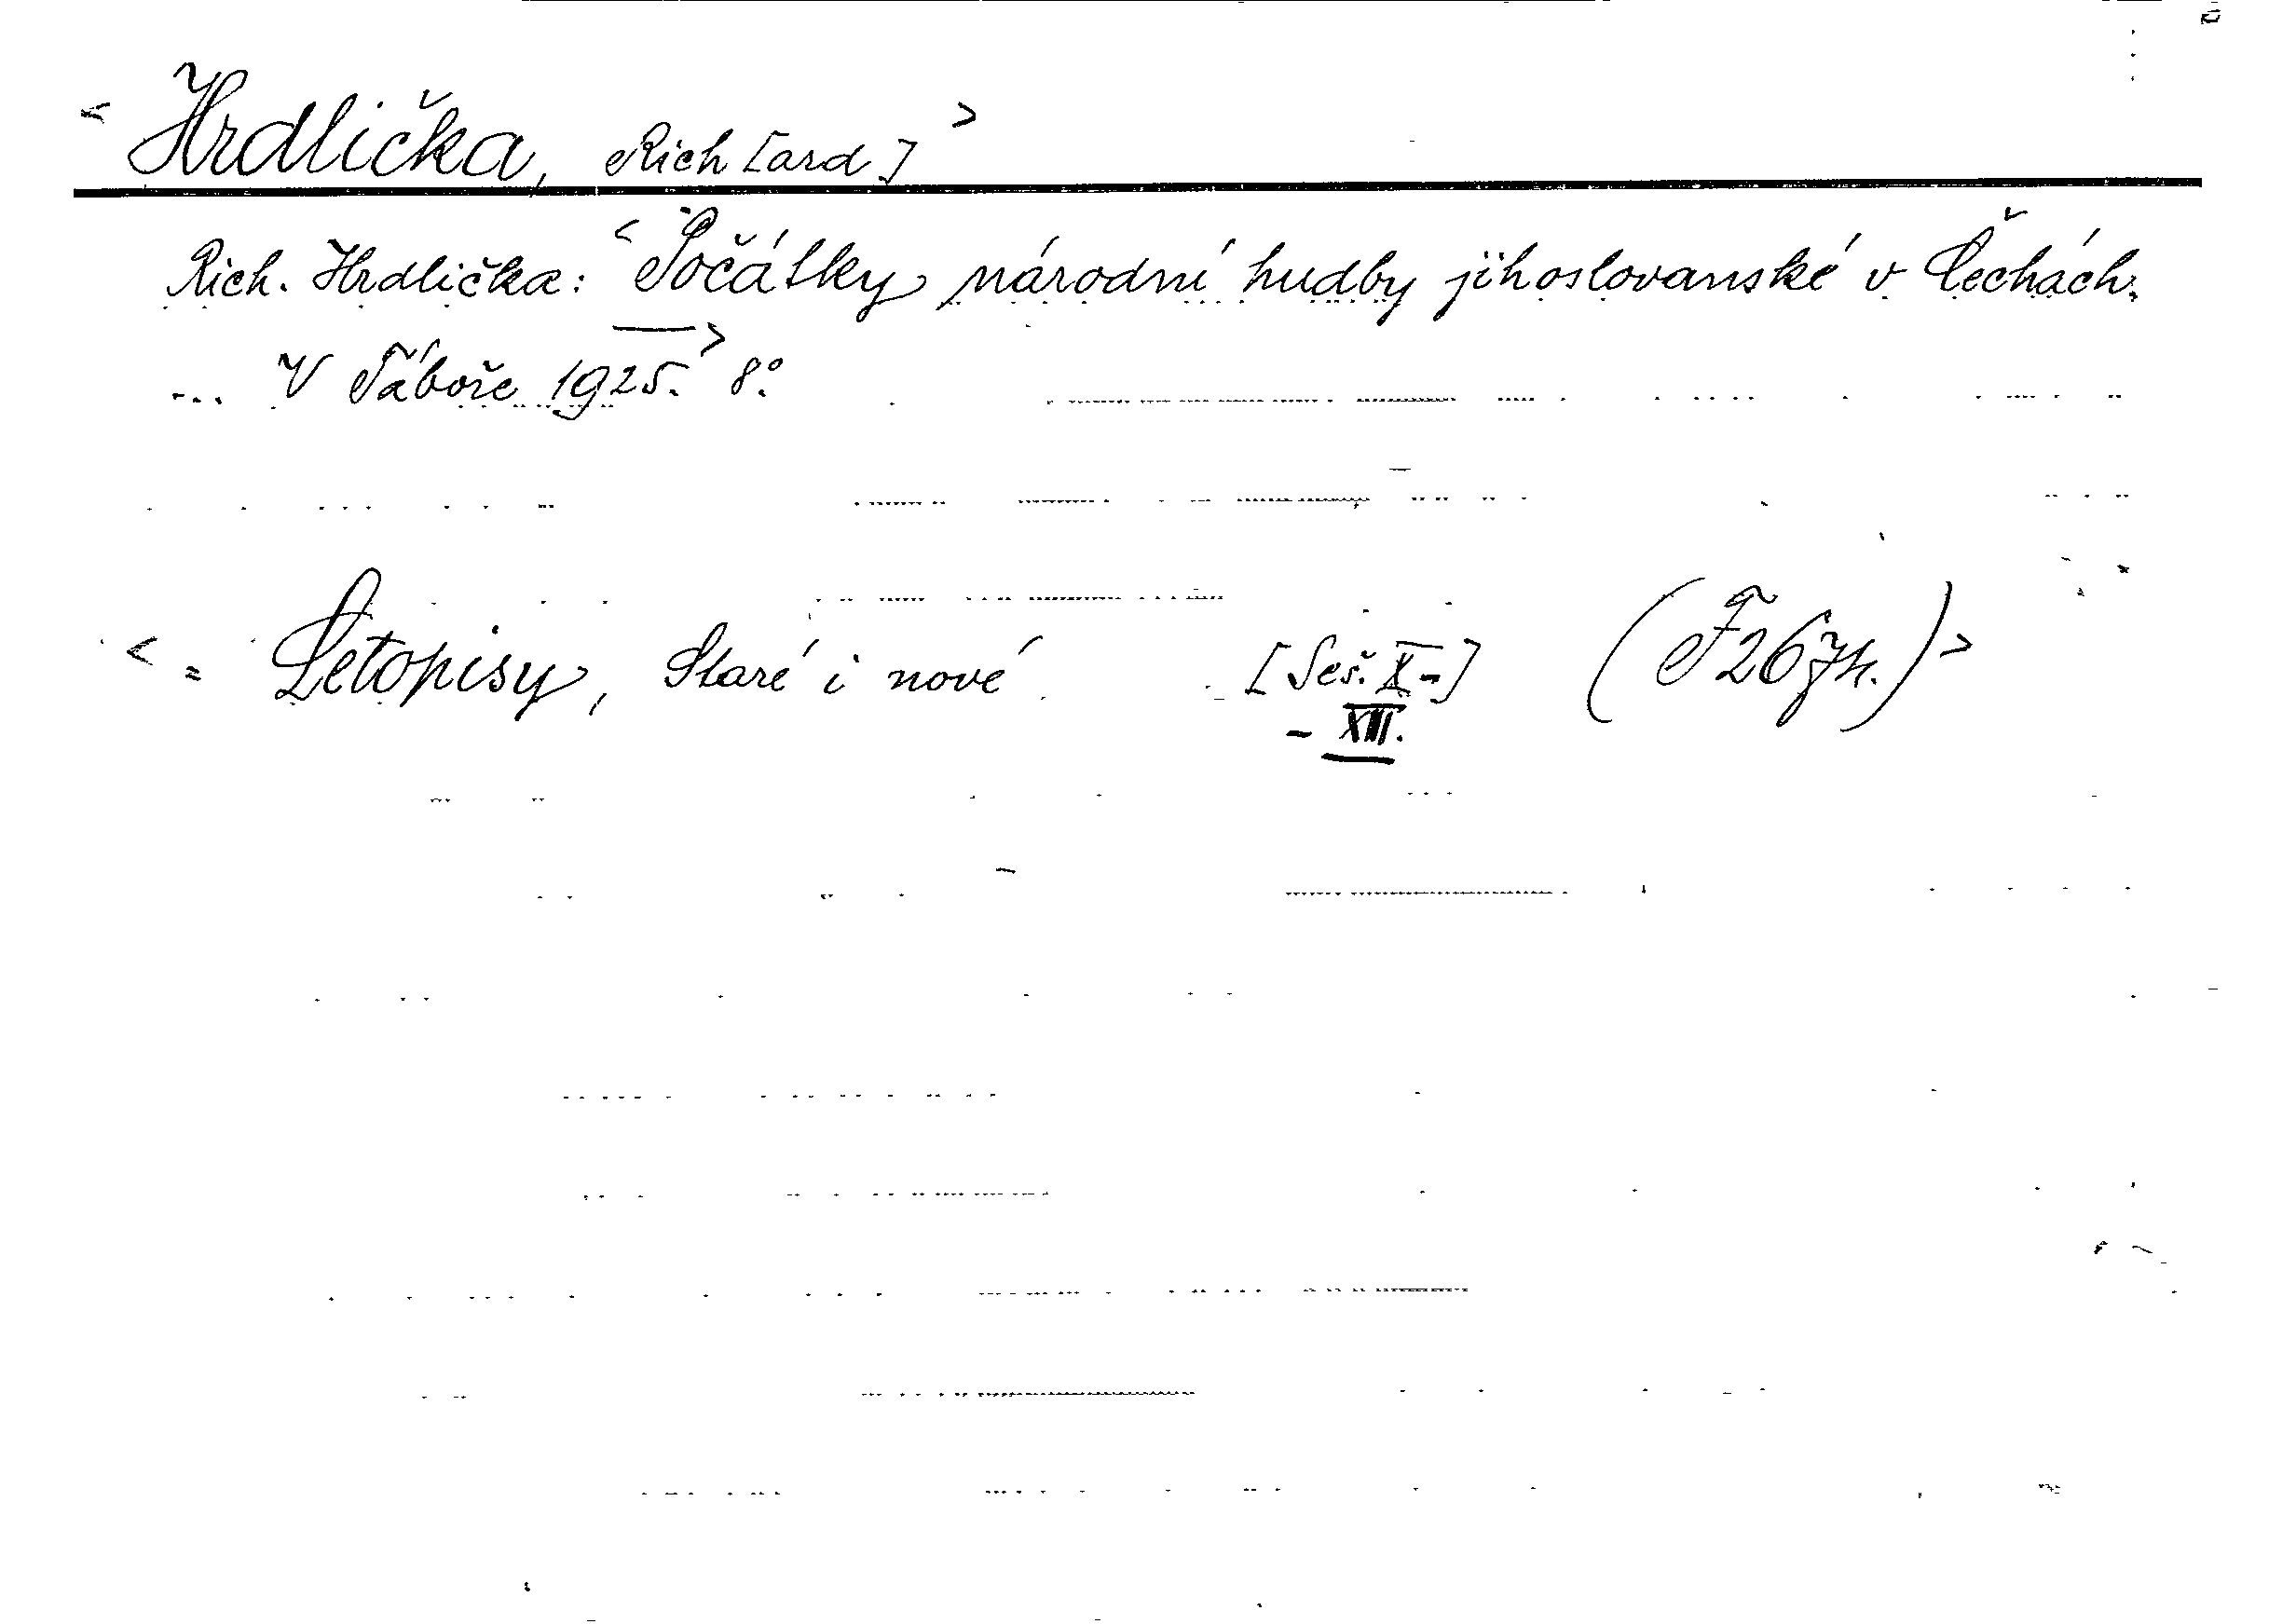 < Hrdlička, Rich[ard] >
Rich. Hrdlička: < Počátky národní hudby jihoslovanské v Čechách.
... V Táboře 1925. > 8°.
< = Letopisy, Staré i nové [Seš. X-] >
- XIII.